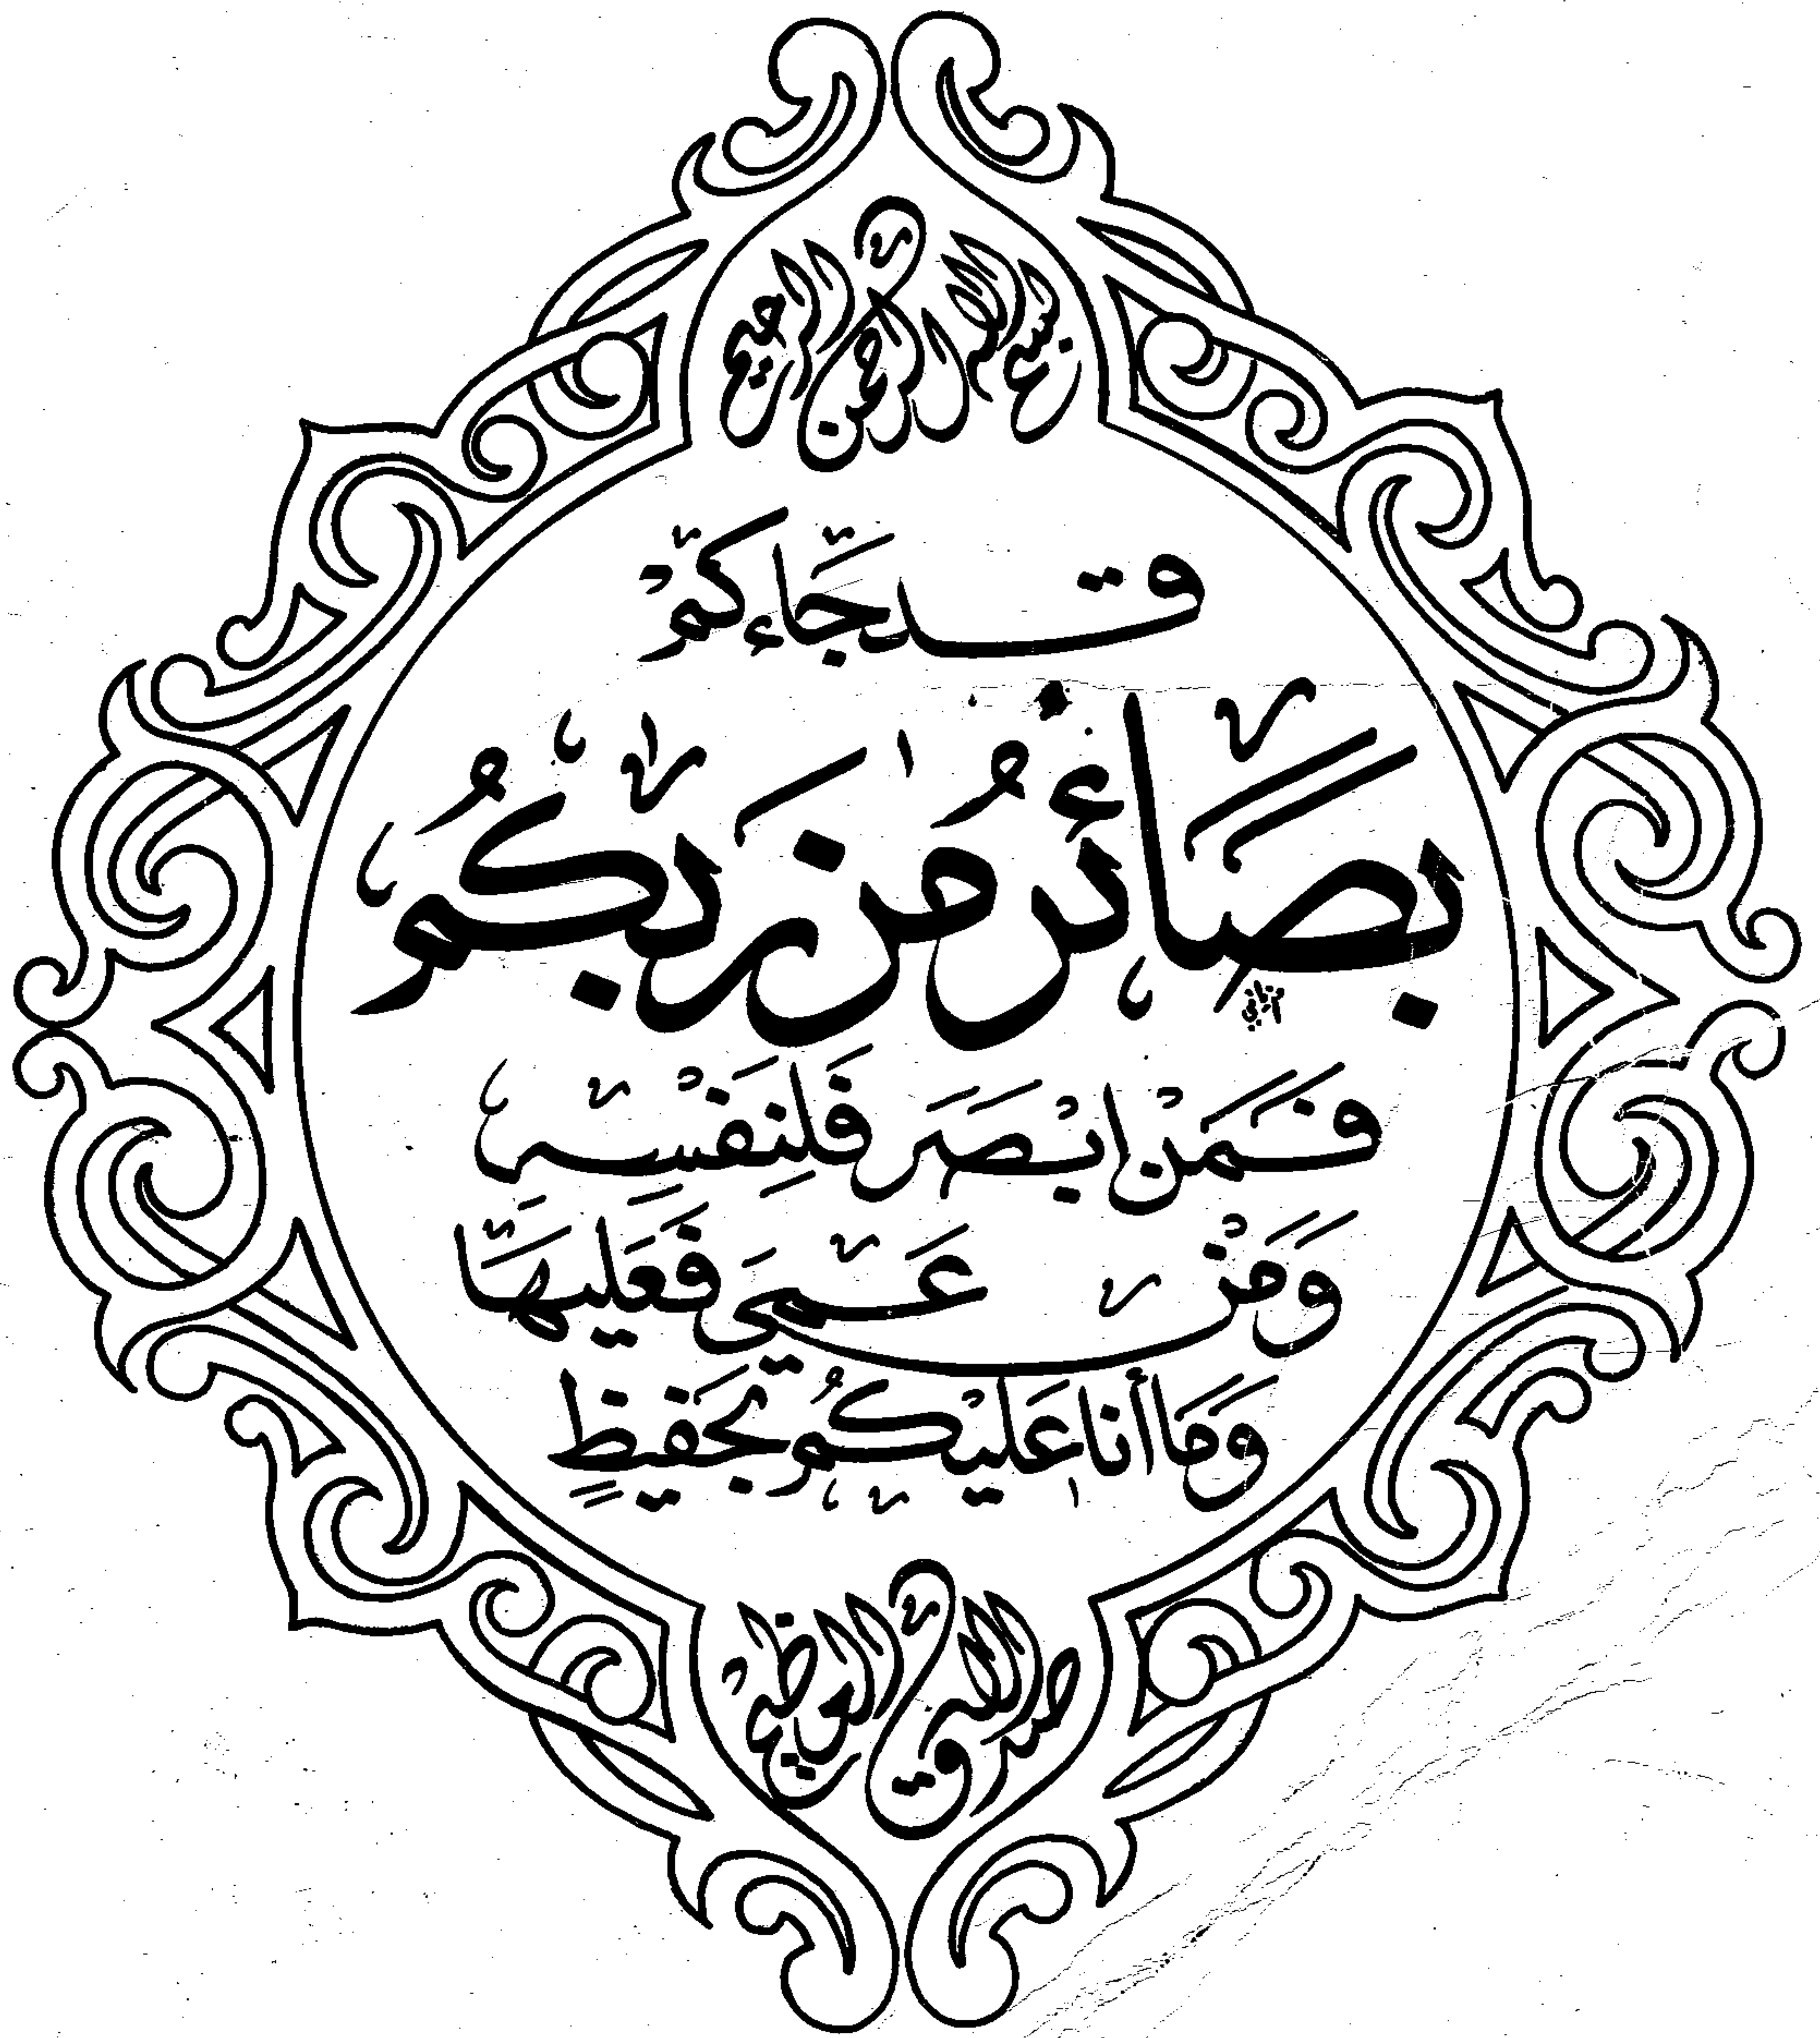 بسم الله الرحمن الرحيم
قد جاءكم
بصائر من ربكم
فمن ابصر فلنفسه
ومن عمي فعليها
وما أنا عليكم بحفيظ
صدق الله العظيم